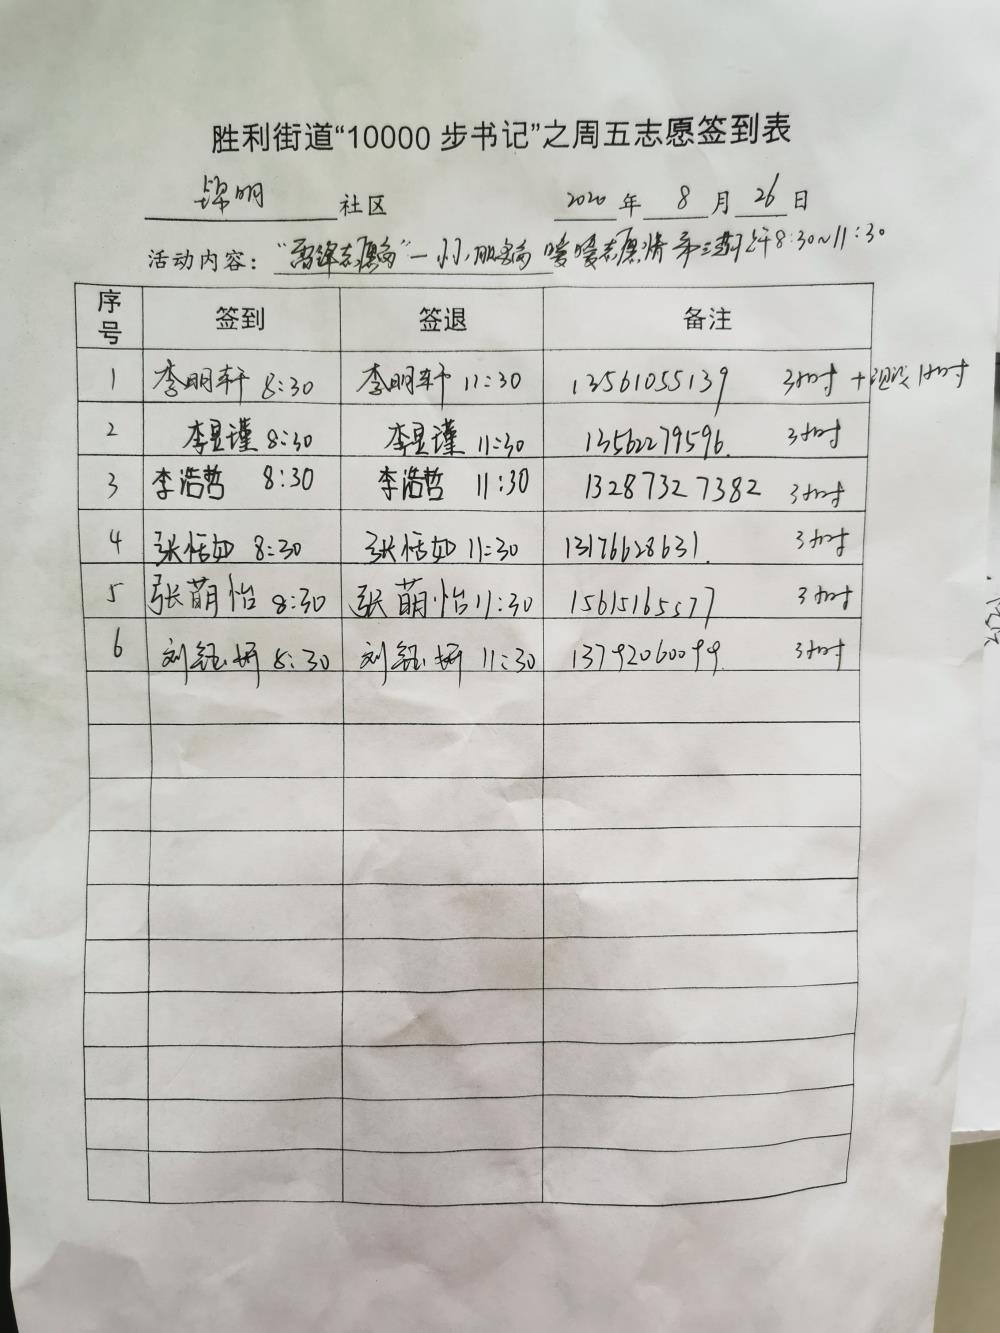 胜利街道“10000 步书记”之周五志愿签到表
锦明 社区 2020 年 8 月 26 日
活动内容： “雷锋志愿岗”一小小服务岗 暖暖志愿情 第三期 上午8:30~11:30
序号 签到 签退 备注
1 李明轩 8:30 李明轩 11:30 13561055139 3小时 + 1小时
2 李昱瑾 8:30 李昱瑾 11:30 13562279596. 3小时
3 李浩哲 8:30 李浩哲 11:30 13287327382 3小时
4 张恬如 8:30 张恬如 11:30 13176628631. 3小时
5 张萌怡 8:30 张萌怡 11:30 15615165577 3小时
6 刘钰妍 8:30 刘钰妍 11:30 13792060099. 3小时